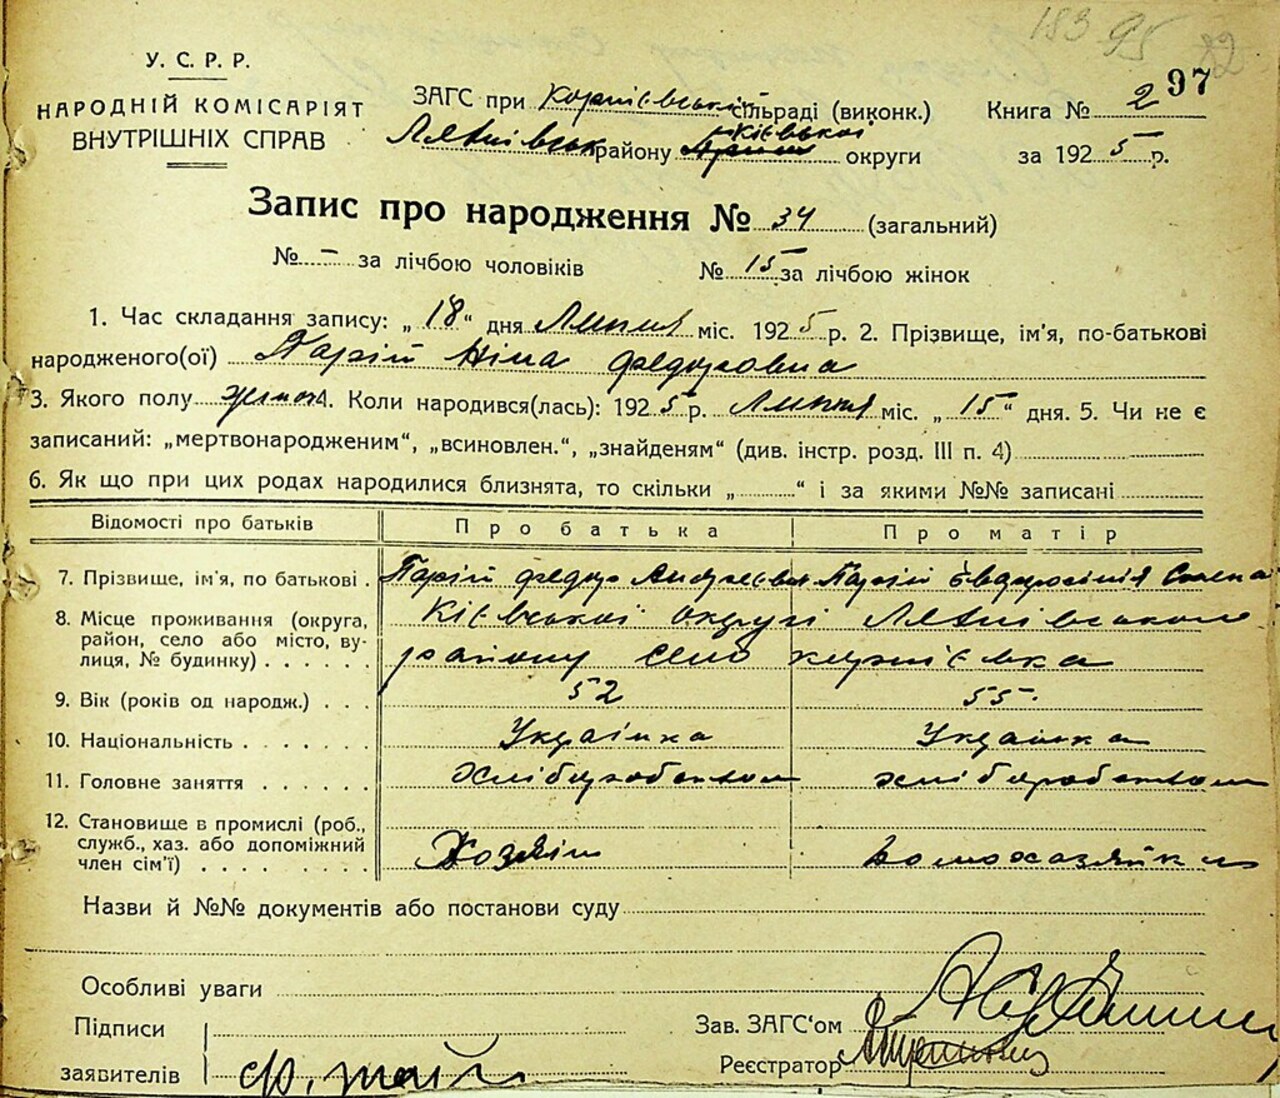 183 95 92
97
У. С. Р. Р.
НАРОДНІЙ КОМІСАРІЯТ
ВНУТРІШНІХ СПРАВ
ЗАГС при Корнієвській сільраді (виконк.)
Книга № 2
районy Київської округи
за 1925 р.
Запис про народження № 34 (загальний)
№ – за лічбою чоловіків № 15 за лічбою жінок
1. Час складання запису: „18“ дня Липня міс. 1925 р. 2. Прізвище, ім'я, по-батькові
народженого(ої) Парій Ніна Федоровна
3. Якого полу жіноч 4. Коли народився(лась): 1925 р. Липня міс. „15“ дня. 5. Чи не є
записаний: „мертвонародженим“, „всиновлен.“, „знайденям“ (див. інстр. розд. III п. 4)
6. Як що при цих родах народилися близнята, то скільки „ “ і за якими №№ записані
Відомості про батьків Про батька Про матір
7. Прізвище, ім'я, по батькові . Парій Федор Андреєвич Парій
8. Місце проживання (округа, район, село або місто, вулиця, № будинку) . . . . . . Київської округи
району село Корнієвка
9. Вік (років од народж.) . . . 52 55
10. Національність . . . . . . . Українка Українка
11. Головне заняття . . . . . . хліборобство хліборобство
12. Становище в промислі (роб.,
служб., хаз. або допоміжний
член сім'ї) . . . . . . . . . Хозяїн домохазяйка
Назви й №№ документів або постанови суду
Особливі уваги
Підписи
заявителів Ф. Парій
Зав. ЗАГС‘ом
Реєстратор